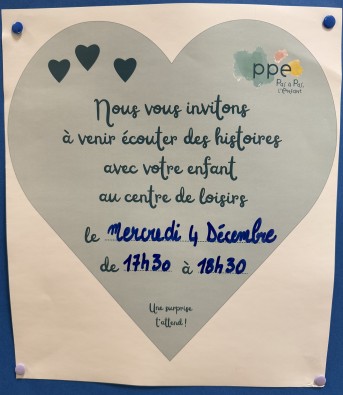 ppe
Pas à Pas,
l'Enfant
Nous vous invitons
à venir écouter des histoires
avec votre enfant
au centre de loisirs
le Mercredi 4 Décembre
de 17h30 à 18h30
Une surprise
t'attend !